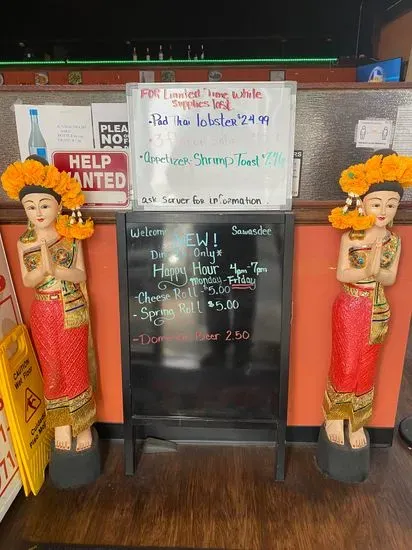 FOR Limited Time While
Supplies last
• Pad Thai lobster $24.99
• Appetizer-Shrimp Toast
ask Server for information.
PLEA
NO
HELP
WANTED
Welcome
Sawasdee
NEW!
Din Only*
Happy Hour 4pm-7pm
Monday-Friday
- Cheese Roll $5.00
- Spring Roll $5.00
- Dom Beer 2.50
CAUTION
Wet Floor